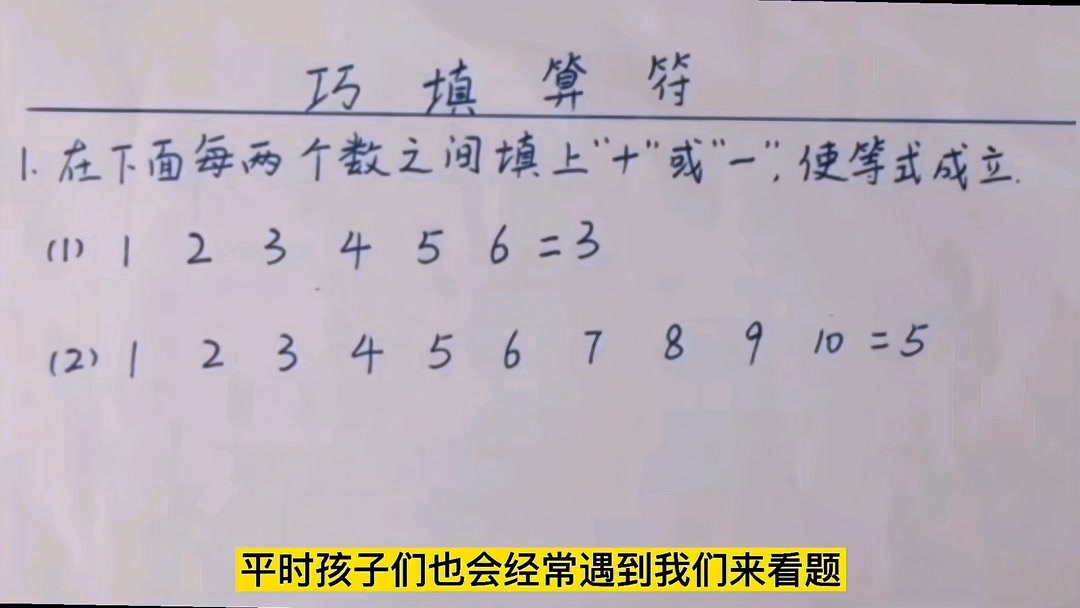 巧填算符
1.在下面每两个数之间填上“+”或“-”,使等式成立.
(1) 1 2 3 4 5 6 =3
(2) 1 2 3 4 5 6 7 8 9 10 =5
平时孩子们也会经常遇到我们来看题